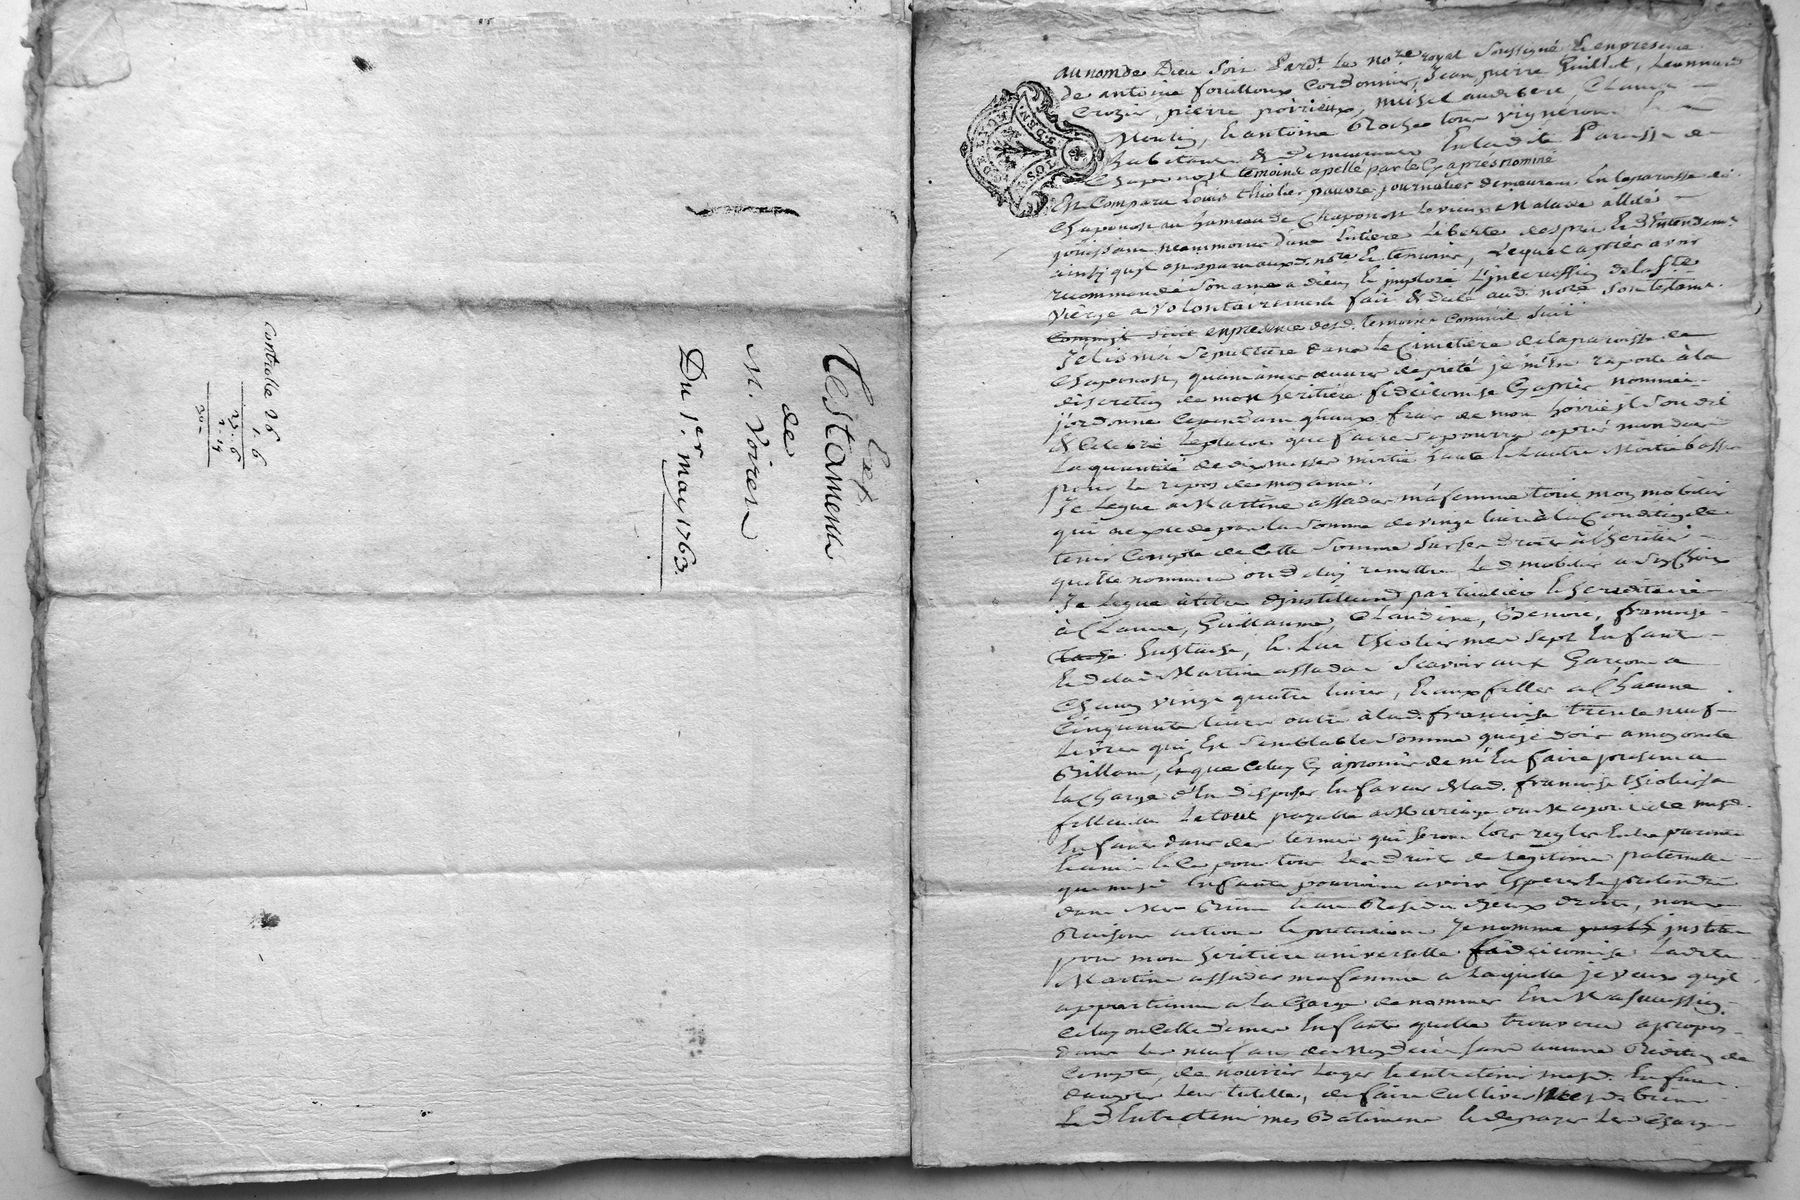 Exp.
Testament
de
M. Voiret
Du 1er. may 1763.
controlle 26
1. 6
au nom de Dieu soit Pardt. le nore royal soussigné & en presence
de antoine fouilloux Cordonnier, Jean pierre Guillot, Leonnard
Crozier, pierre poirieux, michel audebert, Claude
& antoine Rochet tous vignerons
habitans & demeurans En ladite Paroisse de
Chaponost temoins apellé par le Cy aprés nommé
Est Comparu Louis thiolier pauvre journalier demeurant En la paroisse de
Chaponost au hameau de Chaponost le vieux Malade allité
jouissant neanmoins dune Entiere Liberté desprit & dEntendemt
ainsy quil est aparu auxd. nore & temoins, Lequel aprés avoir
recommandé son ame a dieu & imploré L'intercession de la Ste
Vierge a volontairement fait & dicté aud. nore son testamt.
Comme il suit en presence desd. temoins Comme il suit
J'elis ma sepulture dans le Cimetiere de la paroisse de
Chaponost, quant a mes œuvres de pieté je m'En raporte à la
discretion de mon heritiere fideicomise Cy aprés nommée
j'ordonne Cependant quaux frais de mon hoirie il soit dit
& Celebré Leplutot que faire se pourra aprés mon decés
La quantité de dix messes moitié haute & Lautre Moitié basse
pour le repos de mon ame.
Je Legue a Martine assada ma femme tout mon mobilier
qui nexcede pas la somme de vingt livres à la Condition de
tenir Compte de Cette somme sur ses droits à l'heritier
quelle nommera ou deluy remettre Led. mobilier a son Choix
Je Legue à titre d'institution particuliere & hereditaire
à Claude, Guillaume, Claudine, Benoit, francoise
Eustache, & Luc thiolier mes sept Enfants
& de lad. Martine assada Scavoir aux Garçons a
Chacun vingt quatre livres, & aux filles a Chacune
Cinquante livres outre à lad. francoise trente neuf
Livres qui Est semblable somme que je dois a
& que Celuy Cy a promis de m'En faire present a
la Charge d'En disposer En faveur de lad. francoise thiolier sa
filleule Le tout payable a Mariage ou Majorité de mesd.
Enfants dans des termes qui seront lors reglés Entre parents
& amis & Ce pour tous Les droits de Legitime paternelle
que mesd. Enfants pourroient avoir Esperer & pretendre
dans Mes Biens & au Residu d'yceux droits, noms
Raisons actions & pretentions Je nomme & institue
pour mon heritiere universelle fideicomise Ladite
Martine assada ma femme a Laquelle je veux quil
appartienne a la Charge de nommer En Ma succession
Celuy ou Celle de mes Enfants quelle trouvera apropos
dans les neuf ans de Mon decés sans aucune Reddition de
Compte, de nourrir Loger & entretenir mesd. Enfans
durant leur tutelle, de faire Cultiver Mesd. biens
& d'Entretenir mes Batiments & de payer Les Charges